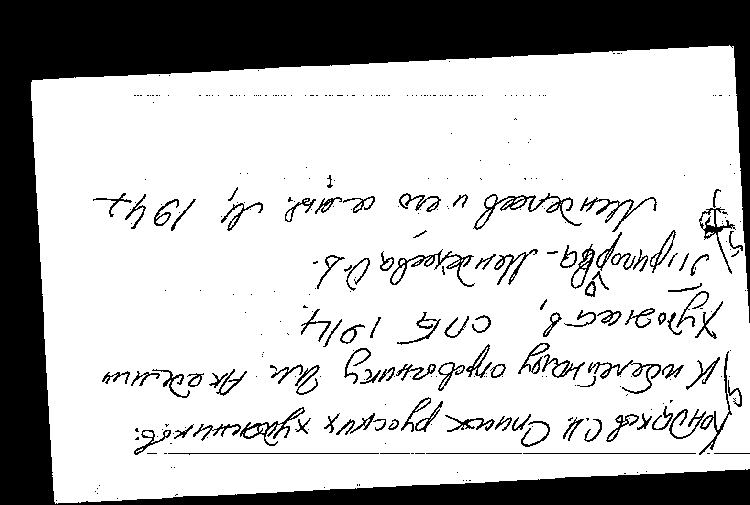 Кондаков С.Н. Список русских художников:
К юбилейному справочнику Им. Академии
Художеств, СПБ 1914.
Трирогова-Менделеева О.Д.
Менделеев и его семья. М, 1947